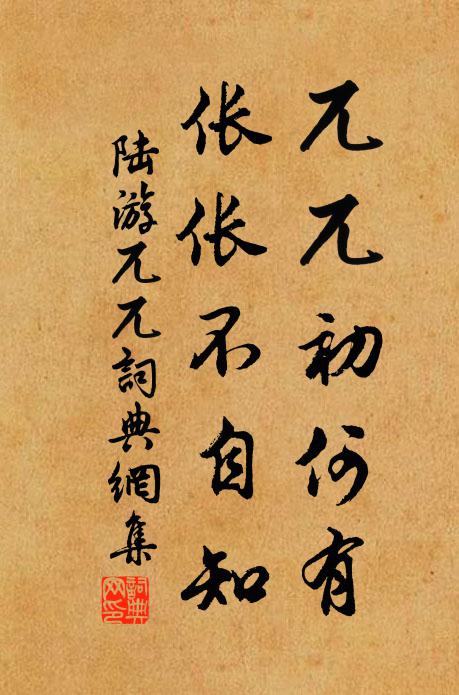 兀兀初何有
伥伥不自知
陆游兀兀詞典網集
詞典网印